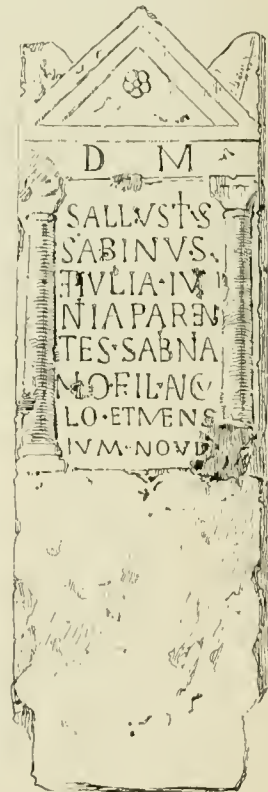 D M
SALLVSTVS
SABINVS
ET IVLIA IVI
NIA PAREN
TES SABINIA
NO FIL ANICV
LO ET MENS
IVM NOVE